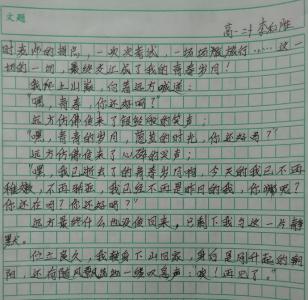 文题
高一2 李
时老师的提问,一次次考试,一场场微行……这一
切的一切,最终变成了我的青春岁月!
我爬上山巅,向着远方喊道:
"嘿,青春,你还好吗?"
远方仿佛传来了轻轻的笑声;
"嘿,青春的岁月,葱茏的时光,你还好吗?"
远方仿佛传来了心碎的笑声;
"嘿,我已逝去了的青春岁月啊,今天的我已不再
稚嫩,不再,我已经不再是昨日的我,你呢?
你还在吗?你还好吗?"
远方最终什么也没传回来,只剩下我与这一片静
默。
伫立良久,我转身下山回家,身后是刚升起的朝
阳,还有随风飘的一缕叹息声:唉!再见了。"